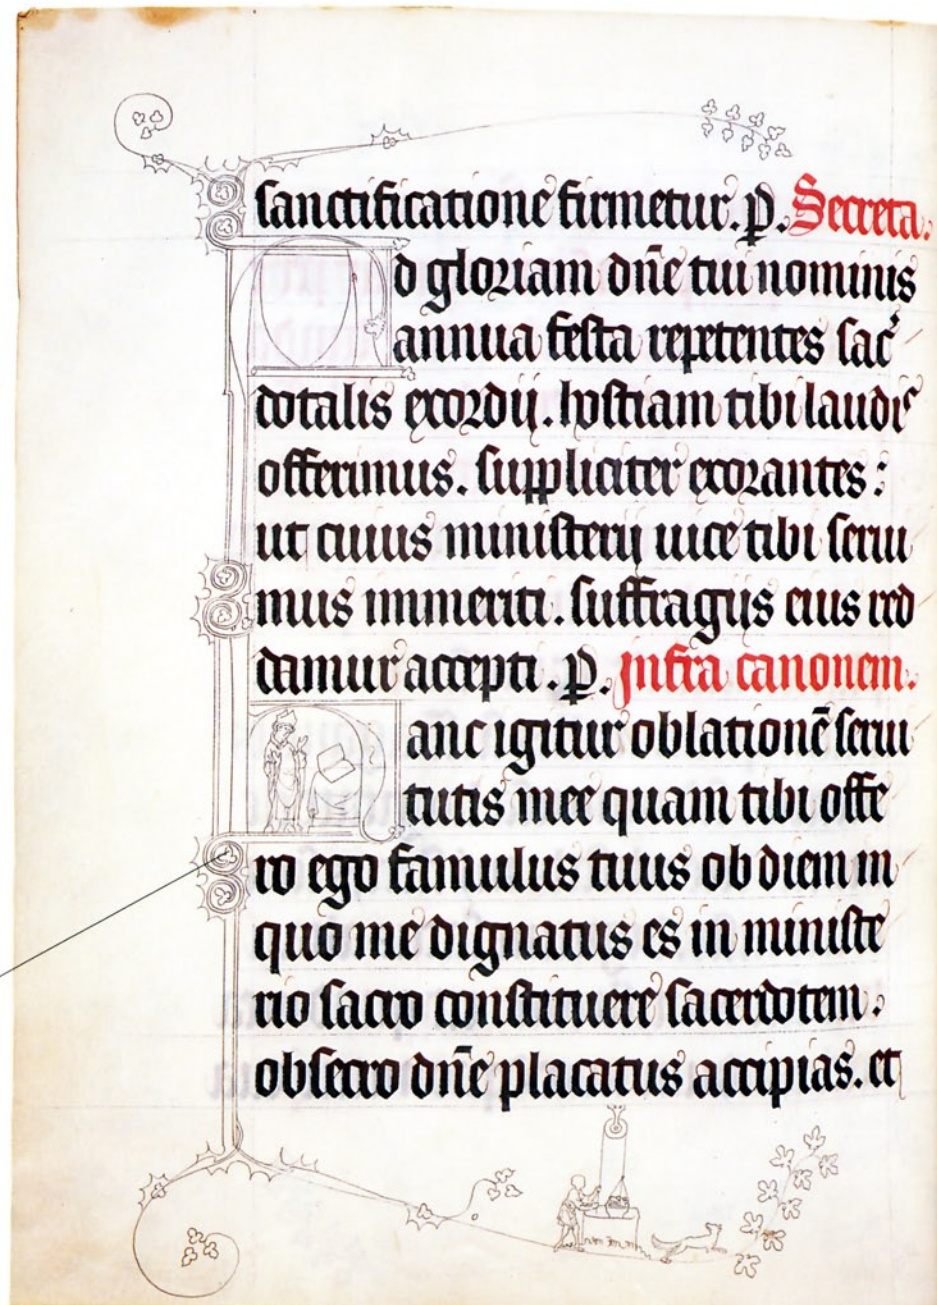 sanctificatione firmetur. P. Secreta.
d gloriam dñe tui nominis
annua festa repetentes sac̉
dotalis exordij. hostiam tibi laudis
offerimus. suppliciter exorantes:
ut cuius ministerij uice tibi serui
mus immeriti. suffragijs eius red
damur accepti. P. Infra canonem.
anc igitur oblationē serui
tutis mee quam tibi offe
ro ego famulus tuus ob diem in
quo me dignatus es in ministe
rio sacro constituere sacerdotem.
obsecro dñe placatus accipias. et